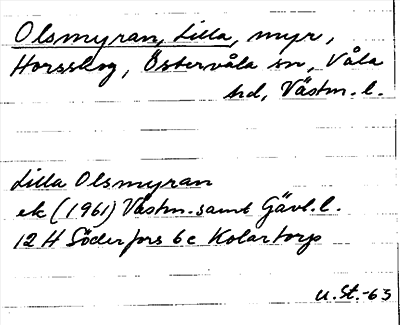 Olsmyran, Lilla, myr,
Horsskog, Östervåla sn, Våla
hd, Västm. l.
Lilla Olsmyran
ek (1961) Västm. samt Gävl. l.
12 H Söderfors 6c Kolartorp
U. St. -63